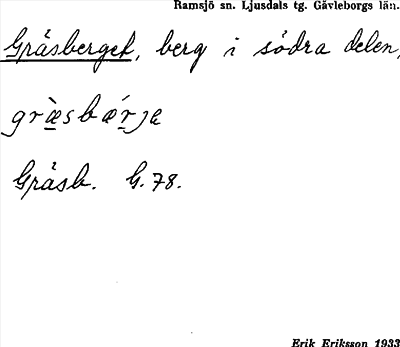 Ramsjö sn. Ljusdals tg. Gävleborgs län.
Gräsberget, berg i södra delen,
græ̀sbǽrje
Gräsb. G. 78.
Erik Eriksson 1933